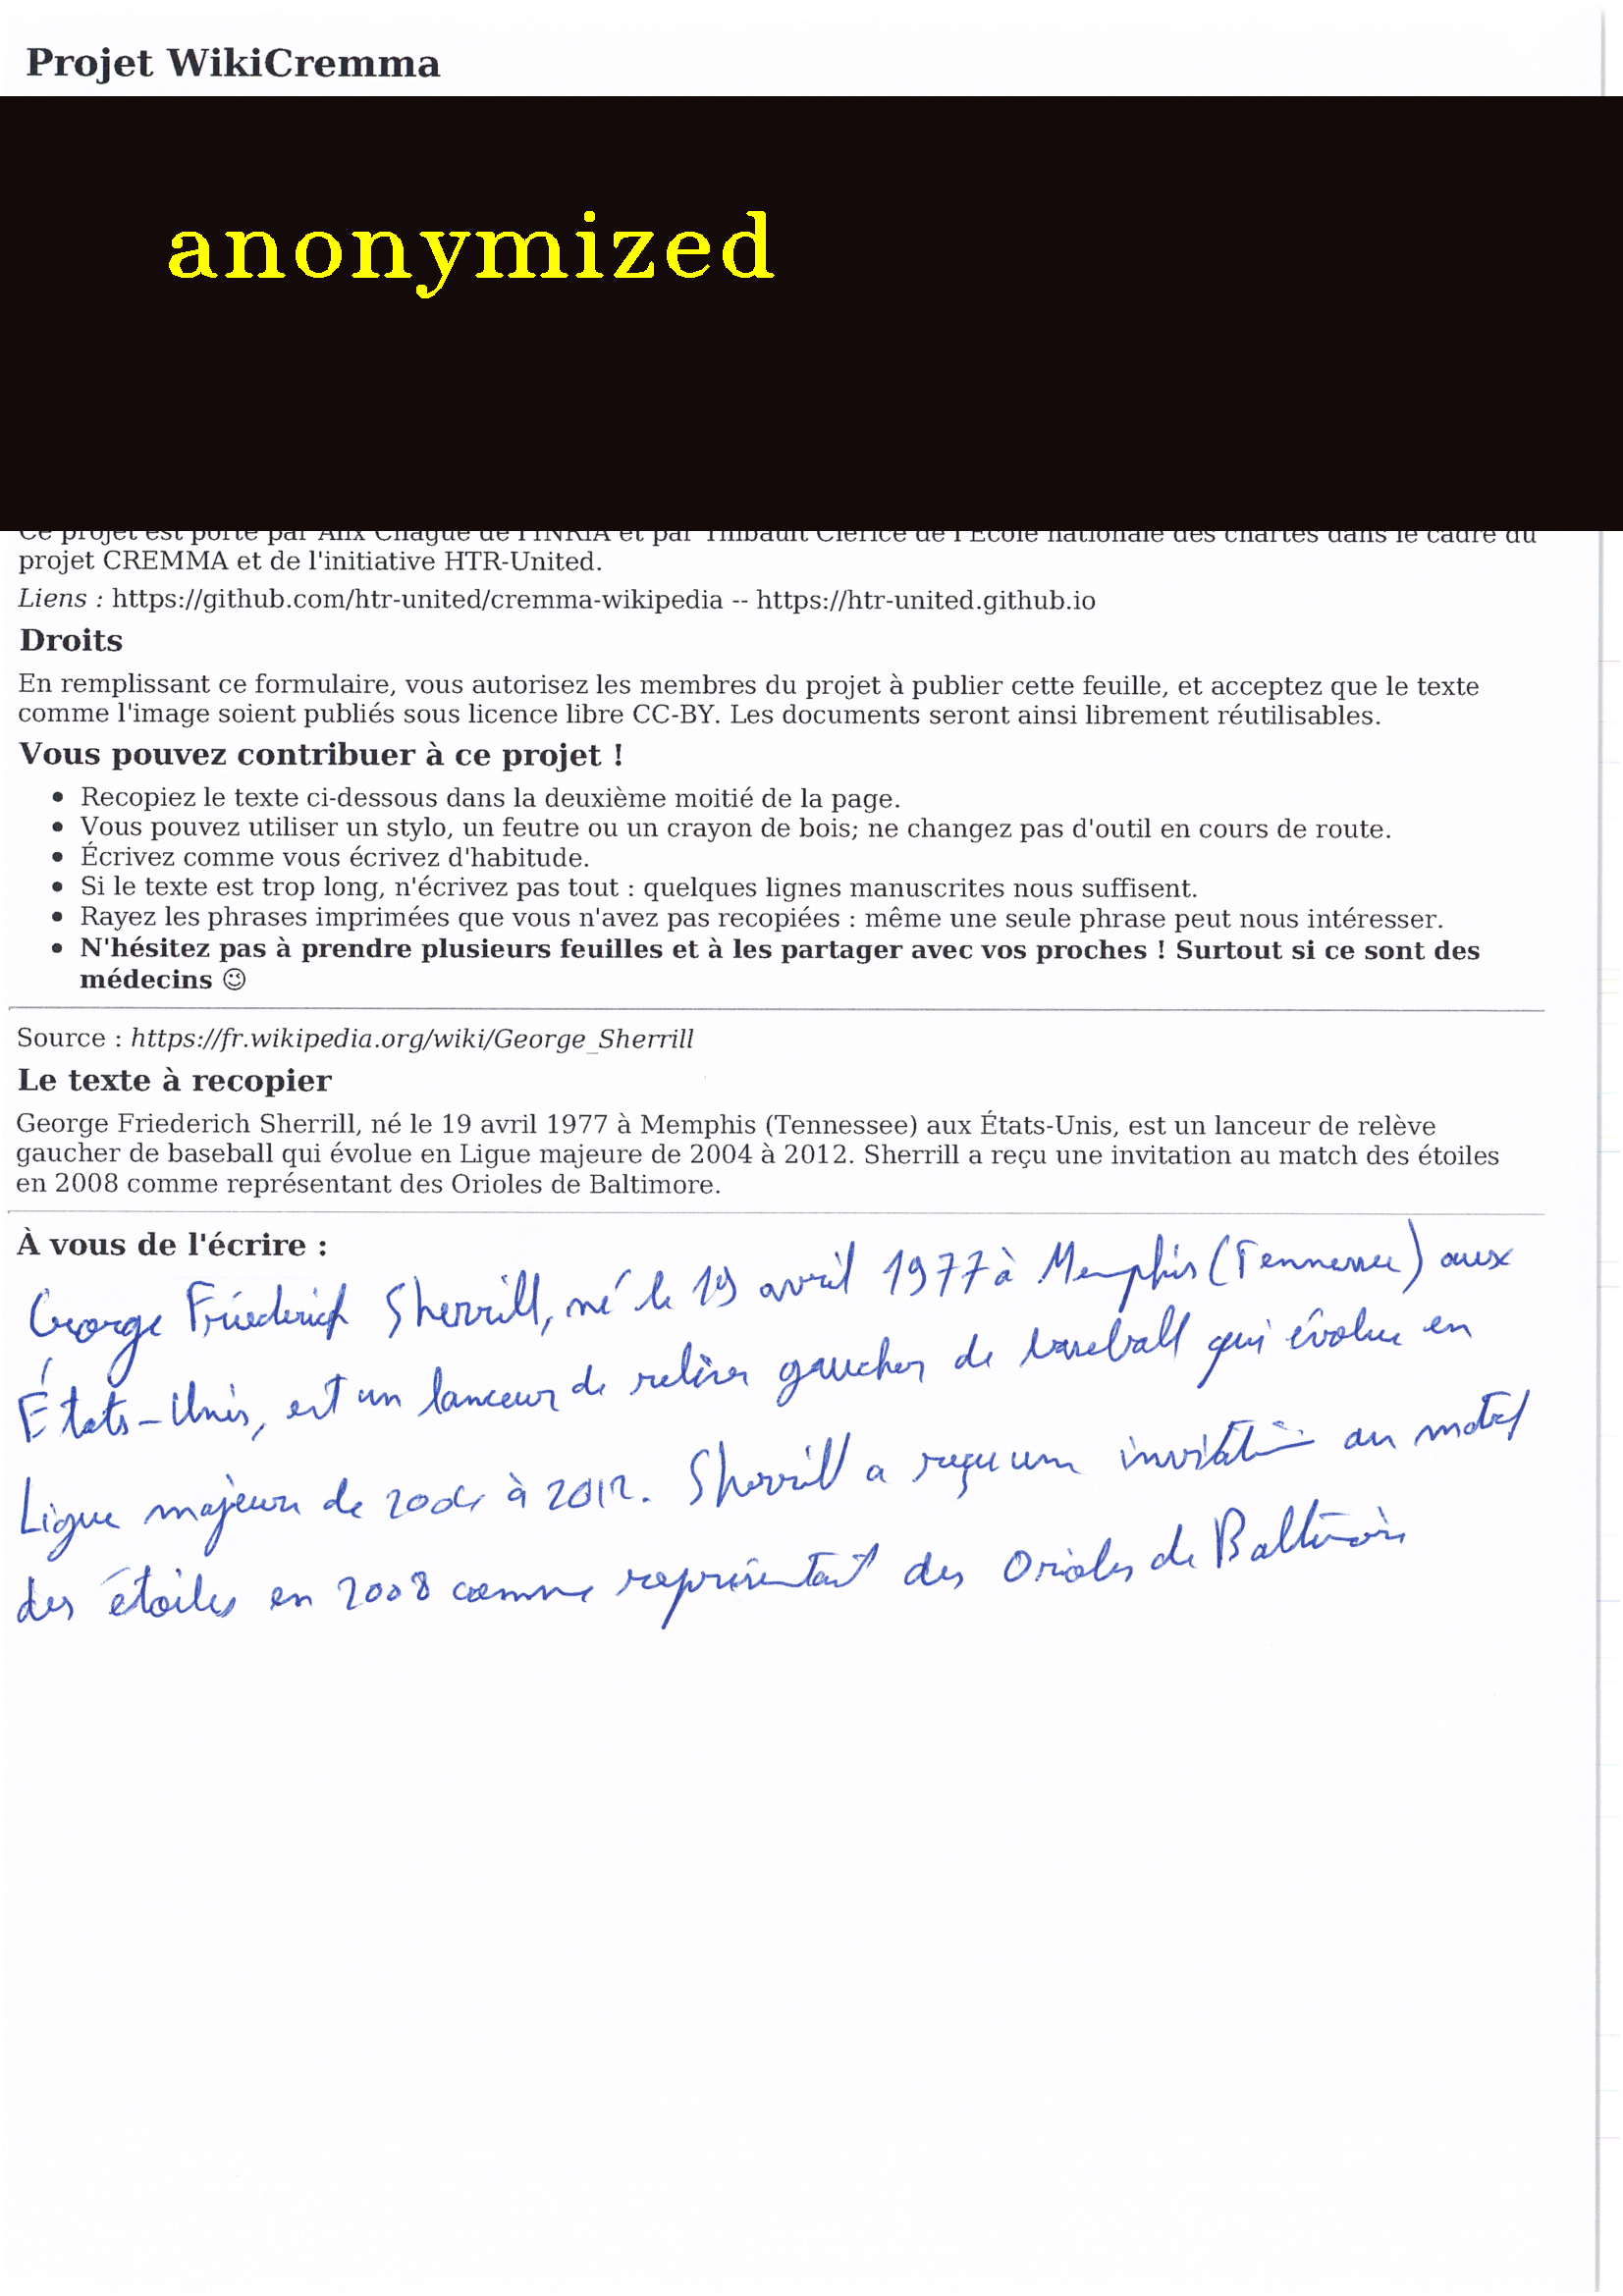 Projet WikiCremma
anonymized
Ce projet est porté par Alix Chagué de l'INRIA et par Thibault Clérice de l'École nationale des chartes dans le cadre du
projet CREMMA et de l'initiative HTR-United.
Liens : https://github.com/htr-united/cremma-wikipedia -- https://htr-united.github.io
Droits
En remplissant ce formulaire, vous autorisez les membres du projet à publier cette feuille, et acceptez que le texte
comme l'image soient publiés sous licence libre CC-BY. Les documents seront ainsi librement réutilisables.
Vous pouvez contribuer à ce projet !
• Recopiez le texte ci-dessous dans la deuxième moitié de la page.
• Vous pouvez utiliser un stylo, un feutre ou un crayon de bois; ne changez pas d'outil en cours de route.
• Écrivez comme vous écrivez d'habitude.
• Si le texte est trop long, n'écrivez pas tout : quelques lignes manuscrites nous suffisent.
• Rayez les phrases imprimées que vous n'avez pas recopiées : même une seule phrase peut nous intéresser.
• N'hésitez pas à prendre plusieurs feuilles et à les partager avec vos proches ! Surtout si ce sont des
médecins 😉
Source : https://fr.wikipedia.org/wiki/George_Sherrill
Le texte à recopier
George Friederich Sherrill, né le 19 avril 1977 à Memphis (Tennessee) aux États-Unis, est un lanceur de relève
gaucher de baseball qui évolue en Ligue majeure de 2004 à 2012. Sherrill a reçu une invitation au match des étoiles
en 2008 comme représentant des Orioles de Baltimore.
À vous de l'écrire :
George Friederich Sherrill, né le 19 avril 1977 à Memphis (Tennessee) aux
États-Unis, est un lanceur de relève gaucher de baseball qui évolue en
Ligue majeure de 2004 à 2012. Sherrill a reçu une invitation au match
des étoiles en 2008 comme représentant des Orioles de Baltimore